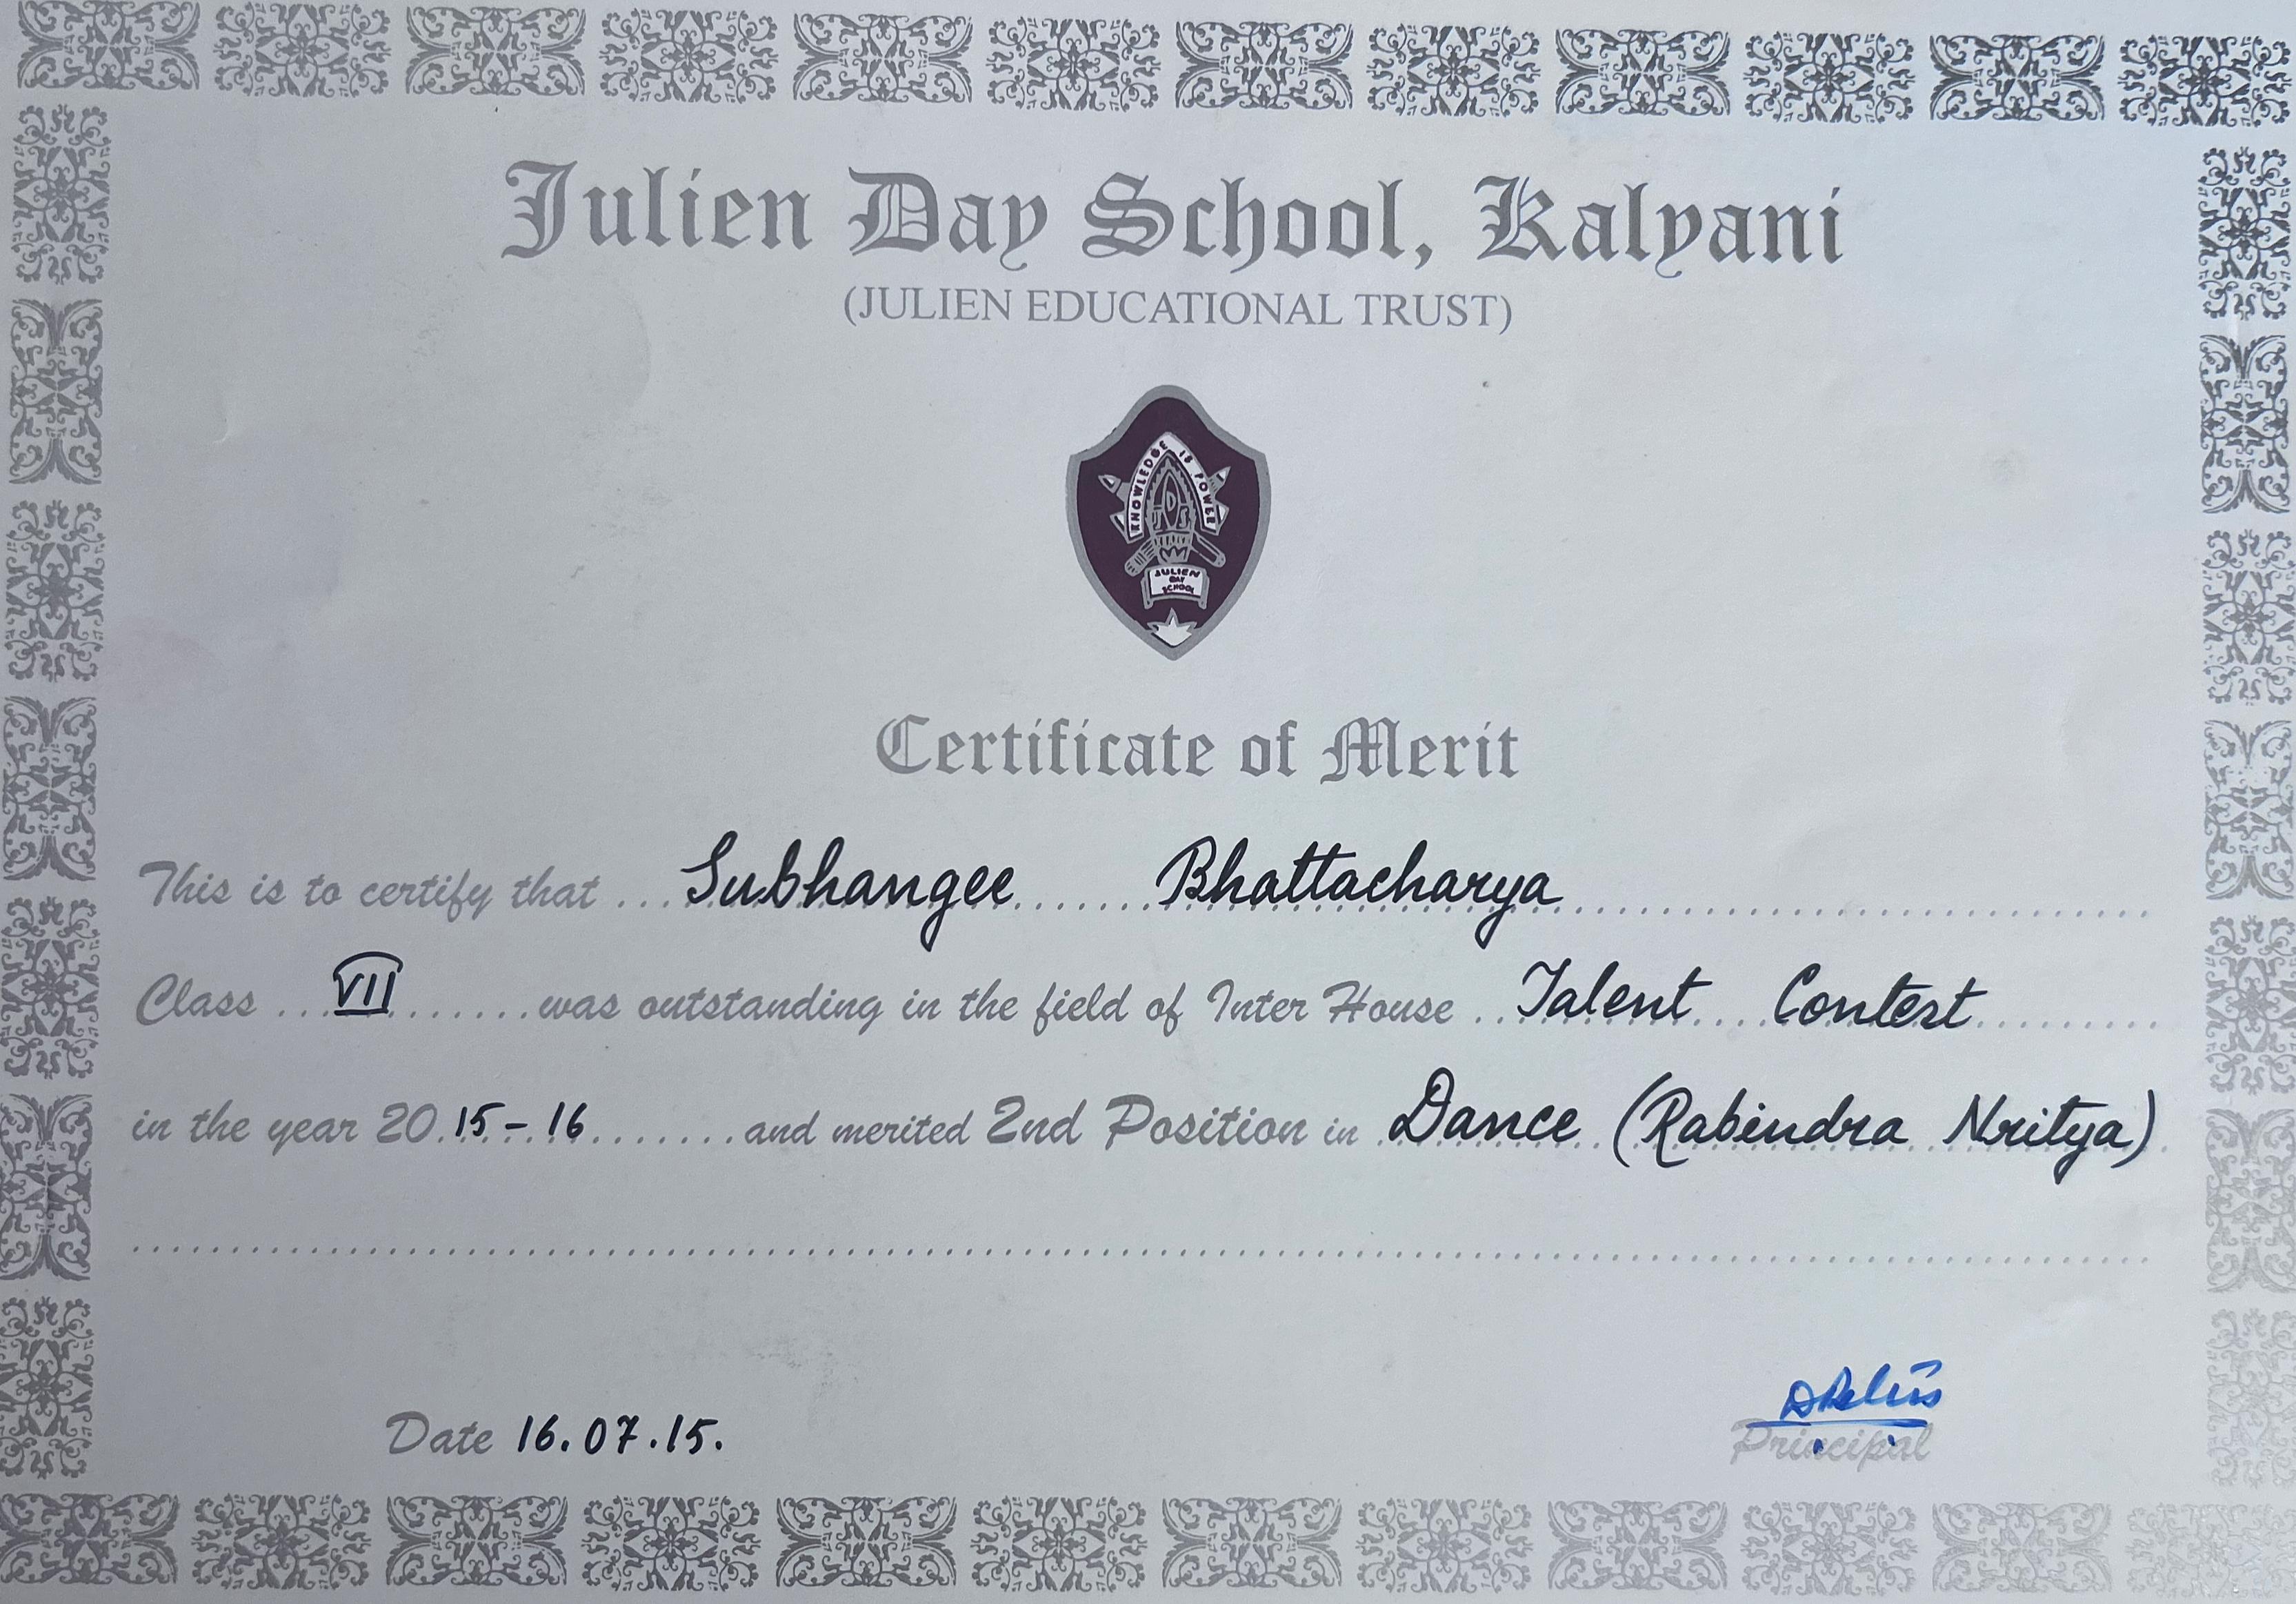 Julien Day School, Kalyani
(JULIEN EDUCATIONAL TRUST)
KNOWLEDGE IS POWER
JDS
JULIEN
DAY
SCHOOL
Certificate of Merit
This is to certify that ... Subhangee ....... Bhattacharya ..............................
Class ... VII ....... was outstanding in the field of Inter House .. Talent ... Contest ..........
in the year 20.15-16 ........ and merited 2nd Position in . Dance (Rabindra Nritya) .
Date 16.07.15.
Principal